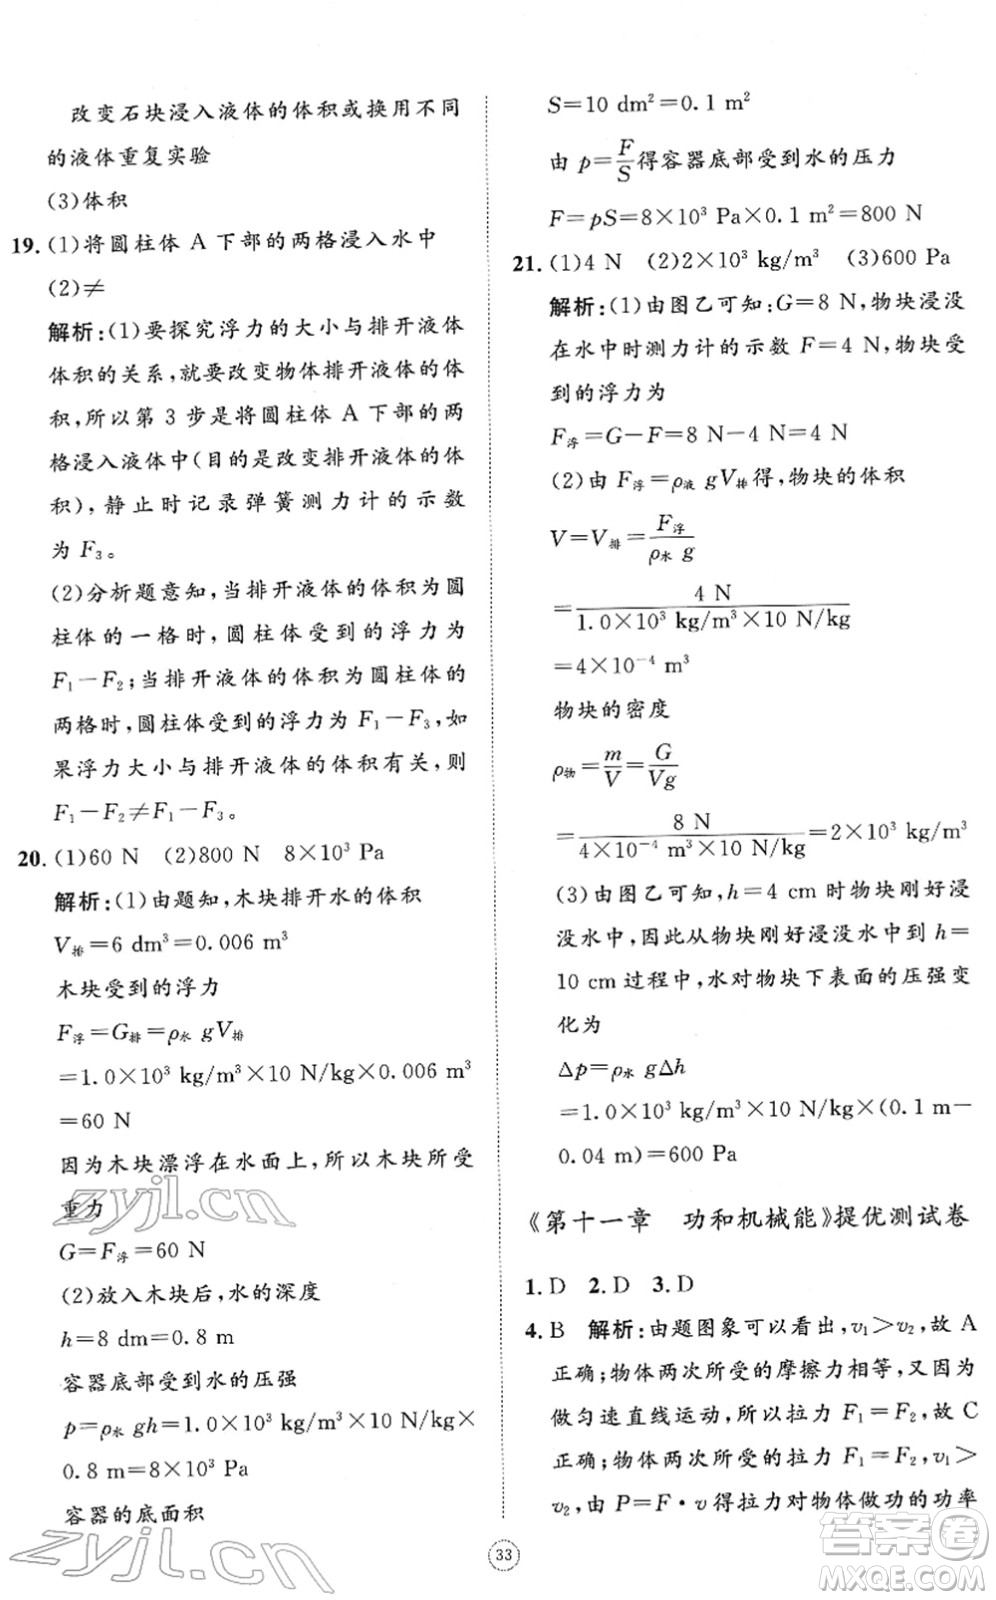 改变石块浸入液体的体积或换用不同
的液体重复实验
(3)体积
19. (1)将圆柱体 A 下部的两格浸入水中
(2)≠
解析:(1)要探究浮力的大小与排开液体
体积的关系,就要改变物体排开液体的体
积,所以第 3 步是将圆柱体 A 下部的两
格浸入液体中(目的是改变排开液体的体
积),静止时记录弹簧测力计的示数
为 F₃。
(2)分析题意知,当排开液体的体积为圆
柱体的一格时,圆柱体受到的浮力为
F₁－F₂;当排开液体的体积为圆柱体的
两格时,圆柱体受到的浮力为 F₁－F₃,如
果浮力大小与排开液体的体积有关,则
F₁－F₂≠F₁－F₃。
20. (1)60 N (2)800 N 8×10³ Pa
解析:(1)由题知,木块排开水的体积
V排=6 dm³=0.006 m³
木块受到的浮力
F浮=G排=ρ水 gV排
=1.0×10³ kg/m³×10 N/kg×0.006 m³
=60 N
因为木块漂浮在水面上,所以木块所受
重力
G=F浮=60 N
(2)放入木块后,水的深度
h=8 dm=0.8 m
容器底部受到水的压强
p=ρ水 gh=1.0×10³ kg/m³×10 N/kg×
0.8 m=8×10³ Pa
容器的底面积
S=10 dm²=0.1 m²
由 p=F/S得容器底部受到水的压力
F=pS=8×10³ Pa×0.1 m²=800 N
21. (1)4 N (2)2×10³ kg/m³ (3)600 Pa
解析:(1)由图乙可知:G=8 N,物块浸没
在水中时测力计的示数 F=4 N,物块受
到的浮力为
F浮=G－F=8 N－4 N=4 N
(2)由 F浮=ρ液 gV排得,物块的体积
V=V排=F浮/ρ水 g
=4 N/1.0×10³ kg/m³×10 N/kg
=4×10⁻⁴ m³
物块的密度
ρ物=m/V=G/Vg
=8 N/4×10⁻⁴ m³×10 N/kg=2×10³ kg/m³
(3)由图乙可知,h=4 cm 时物块刚好浸
没水中,因此从物块刚好浸没水中到 h=
10 cm 过程中,水对物块下表面的压强变
化为
Δp=ρ水 gΔh
=1.0×10³ kg/m³×10 N/kg×(0.1 m－
0.04 m)=600 Pa
《第十一章 功和机械能》提优测试卷
1. D 2. D 3. D
4. B 解析:由题图象可以看出,v₁＞v₂,故 A
正确;物体两次所受的摩擦力相等,又因为
做匀速直线运动,所以拉力 F₁=F₂,故 C
正确;物体两次所受的拉力 F₁=F₂,v₁＞
v₂,由 P=F·v得拉力对物体做功的功率
33
zyjl.cn
zyjl.cn
答案圈
MXQE.COM